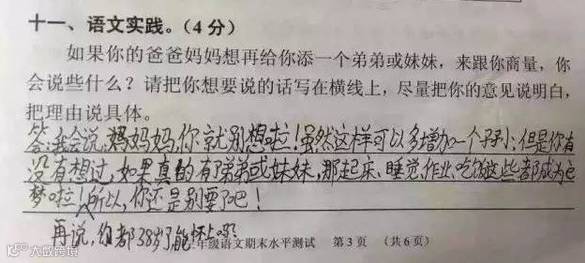 十一、语文实践。（4分）
如果你的爸爸妈妈想再给你添一个弟弟或妹妹，来跟你商量，你
会说些什么？请把你想要说的话写在横线上，尽量把你的意见说明白，
把理由说具体。
答：我会说，妈妈妈，你就别想啦！虽然这样可以多增加一个孩子，但是你有
没有想过，如果真的有了弟弟或妹妹，那起床、睡觉、作业、吃饭这些都成为
梦啦！所以，你还是别要了吧！
再说，你都38岁了能怀上吗？
年级语文期末水平测试 第3页 （共6页）
大应跨境